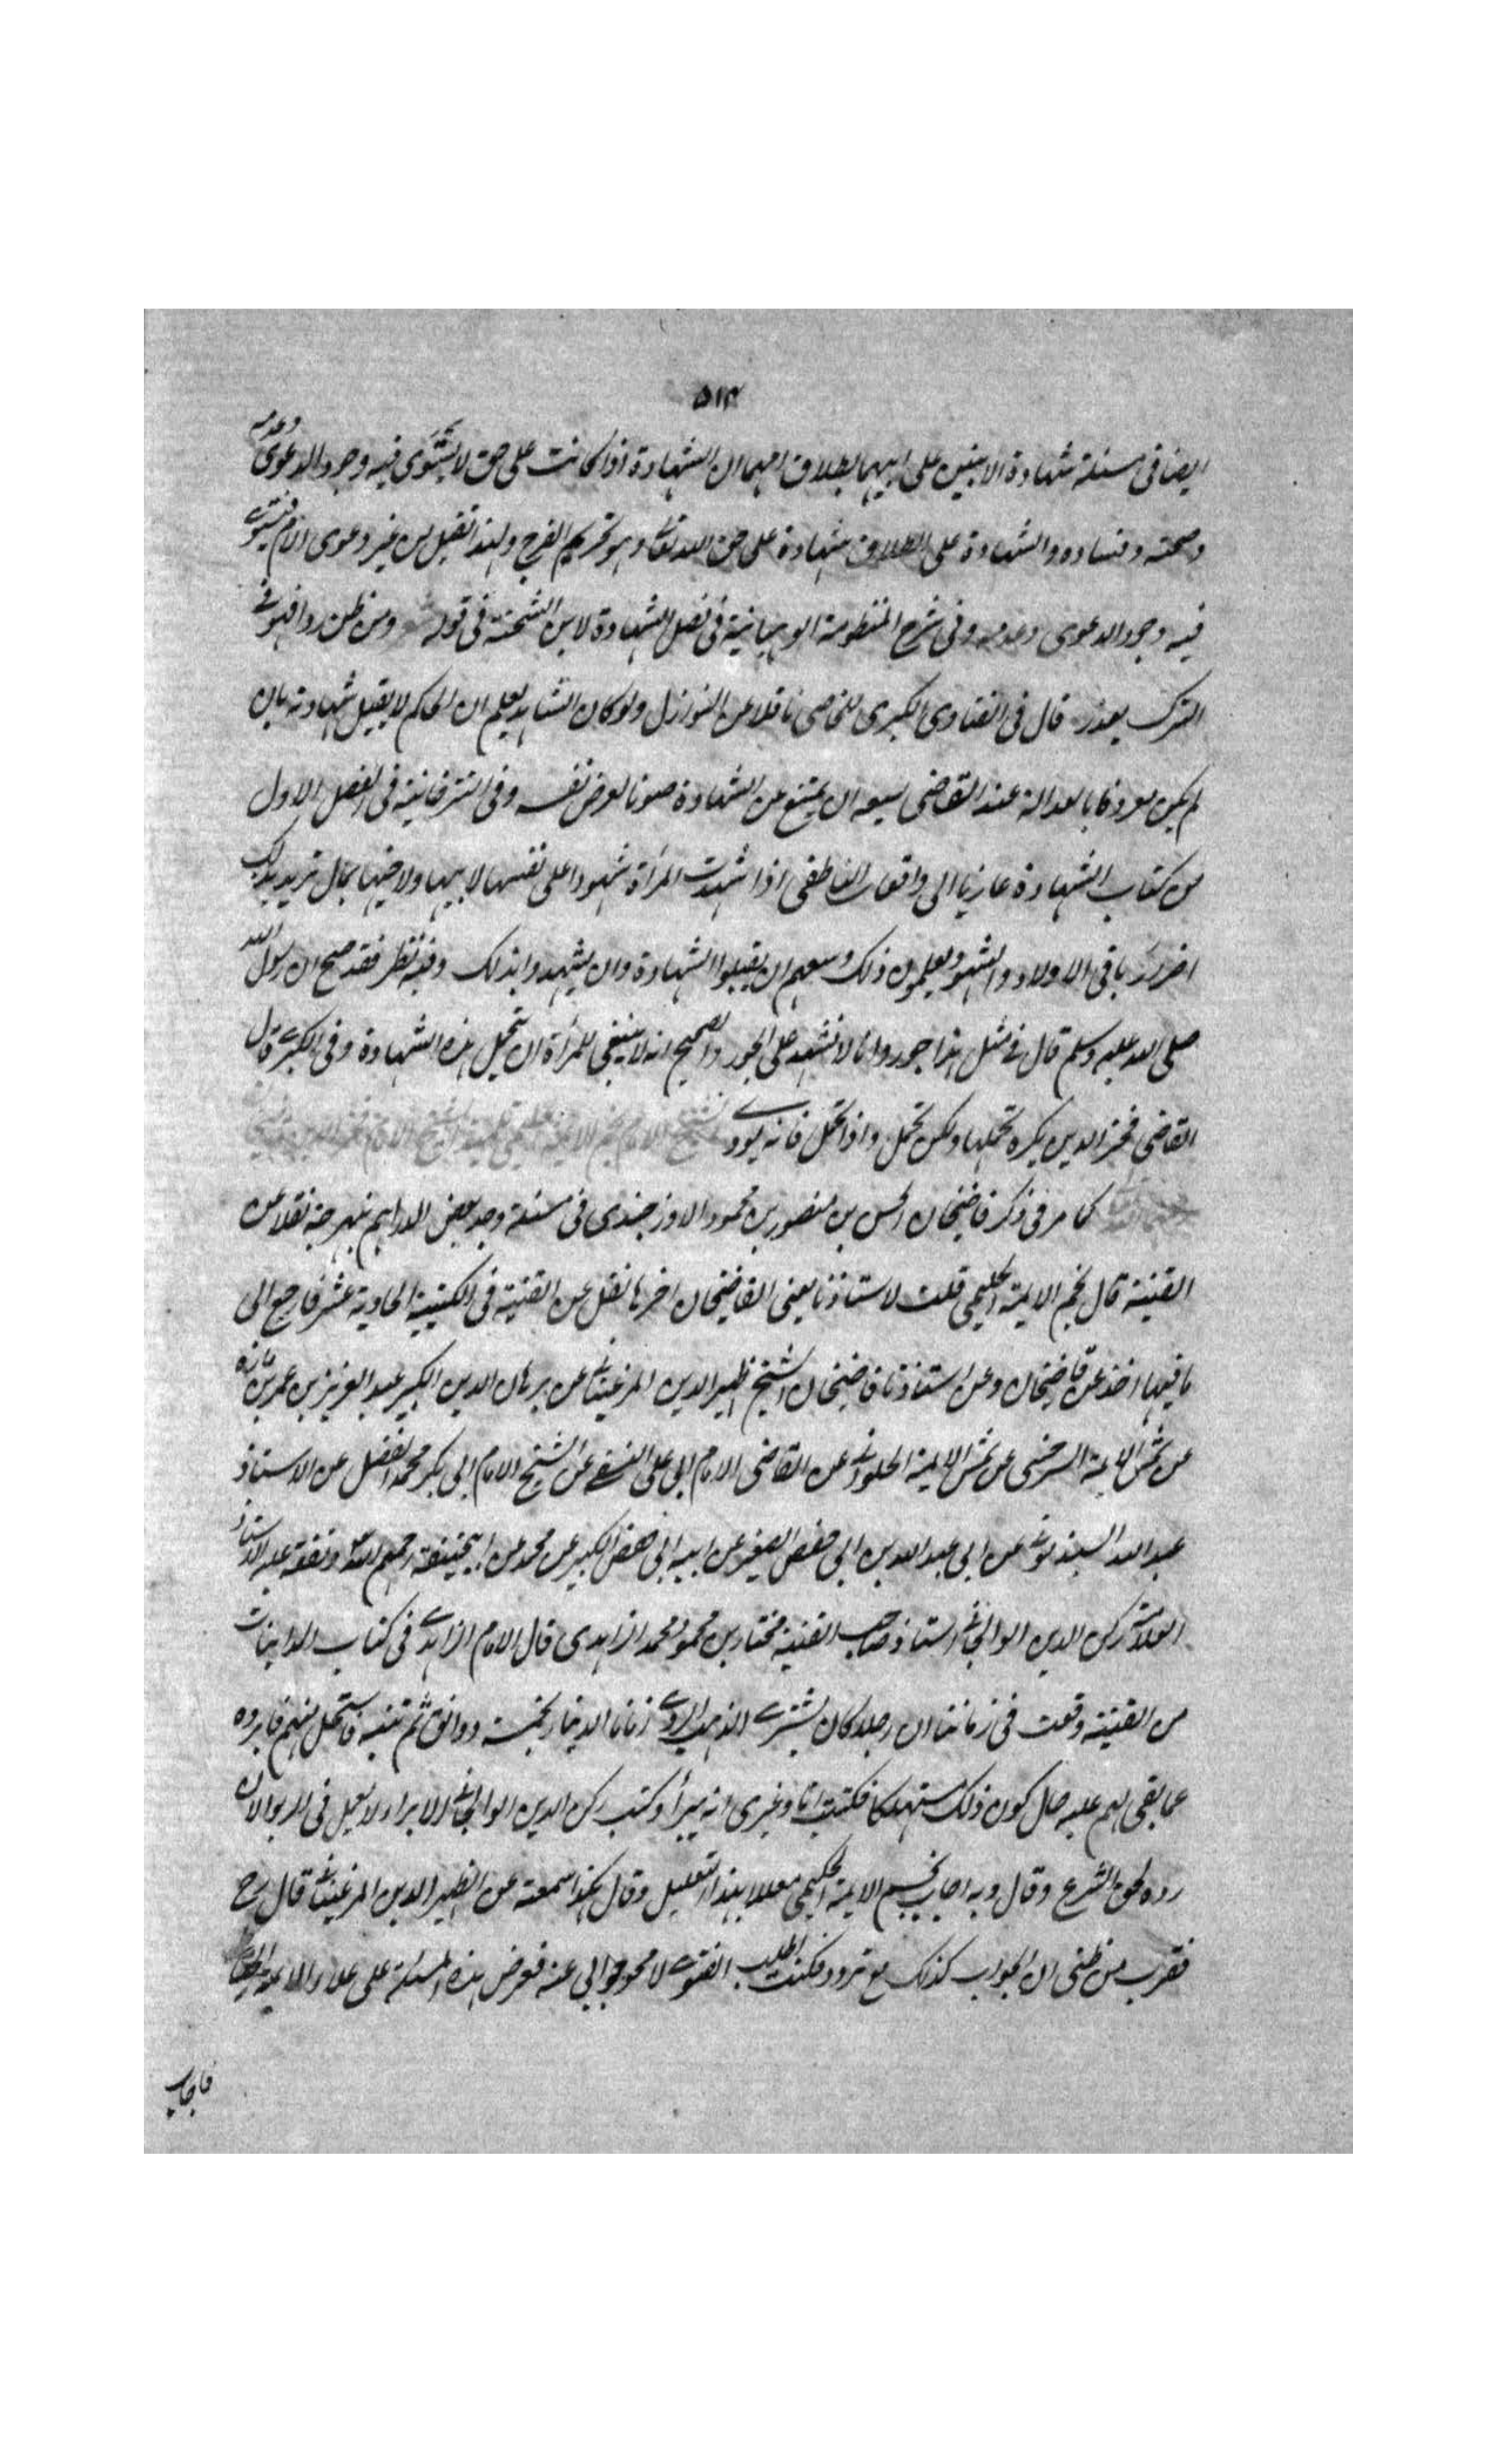 ٥١٣
ايضا فى مسئلة شهادة الابنين على ابيهما بطلاق امهما ان الشهادة اذا كانت على حق لا يستوى فيه وجود الدعوى وعدمه
وصحته وفساده والشهادة على الطلاق شهادة على حق الله تعالى وهو تحريم الفرج ولهذا تقبل من غير دعوى الام فيستوى
فيه وجود الدعوى وعدمه وفى شرح المنظومة الوهبانية فى فصل الشهادة لابن الشحنة فى قوله ومن ظن ردا فهو فى
الترك يعذر قال فى الفتاوى الكبرى للخاصى ناقلا عن النوازل ولو كان الشاهد يعلم ان الحاكم لا يقبل شهادته بان
لم يكن معروفا بالعدالة عند القاضى يسعه ان يمتنع عن الشهادة صونا لعرض نفسه وفى التترخانية فى الفصل الاول
من كتاب الشهادة عازيا الى واقعات الناطفى اذا اشهدت المرأة شهودا على نفسها لابيها ولاخيها بمال تريد بذلك
اضرار باقى الاولاد والشهود يعلمون ذلك وسعهم ان يقبلوا الشهادة وان يشهدوا بذلك وفيه نظر فقد صح ان رسول الله
صلى الله عليه وسلم قال فى مثل هذا جور وانا لا نشهد على الجور والصحيح انه لا ينبغى للمرأة ان تحمل هذه الشهادة وفى الكبرى قال
القاضى فخر الدين يكره تحملها ولكن تحمل واذا تحمل فانه يودى
كما مر فى ذكر قاضيخان الحسن بن منصور بن محمود الاوزجندى فى مسئلة وجد بعض الدراهم نبهرجة نقلا عن
القنية قال نجم الايمة الحليمى قلت لاستاذنا يعنى القاضيخان اخر ما نقل عن القنية فى الكتيبة الحادية عشر فارجع الى
ما فيها اخذ عن قاضيخان وعن استاذنا قاضيخان الشيخ ظهير الدين المرغينانى عن برهان الدين الكبير عبد العزيز بن عمر بن مازه
عن شمس الايمة السرخسى عن شمس الايمة الحلوانى عن القاضى الامام ابى على النسفى عن الشيخ الامام ابى بكر محمد بن الفضل عن الاستاذ
عبد الله السبذمونى عن ابى عبد الله بن ابى حفص الصغير عن ابيه ابى حفص الكبير عن محمد عن ابيحنيفة رحمهم الله وتفقه عليه الاستاذ
العلامة ركن الدين الوالجانى استاذ صاحب القنية مختار بن محمود بن محمد الزاهدى قال الامام الزاهدى فى كتاب المداينات
من القنية وقعت فى زماننا ان رجلا كان يشترى الذهب الردى زمانا الدينار بخمسة دوانق ثم تنبه فاستحل منهم فابروه
عما بقى لهم عليه حال كون ذلك مستهلكا فكتبت انا وغيرى انه يبرأ وكتب ركن الدين الوالجانى الابراء لا يعمل فى الربوا لان
رده لحق الشرع وقال وبه اجاب نجم الايمة الحليمى معللا بهذا التعليل وقال هكذا سمعته عن الظهير الدين المرغينانى قال رح
فقرب من ظنى ان الجواب كذلك مع تردد فكنت اطلب الفتوى لامحو جوابى عنه فعرض هذه المسئلة على علاء الايمة
فاجاب